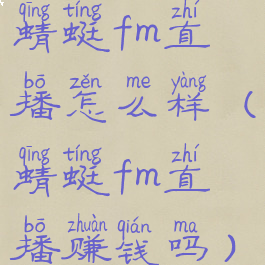 qīng tíng zhí
蜻蜓fm直
bō zěn me yàng
播怎么样（
qīng tíng zhí
蜻蜓fm直
bō zhuàn qián ma
播赚钱吗）